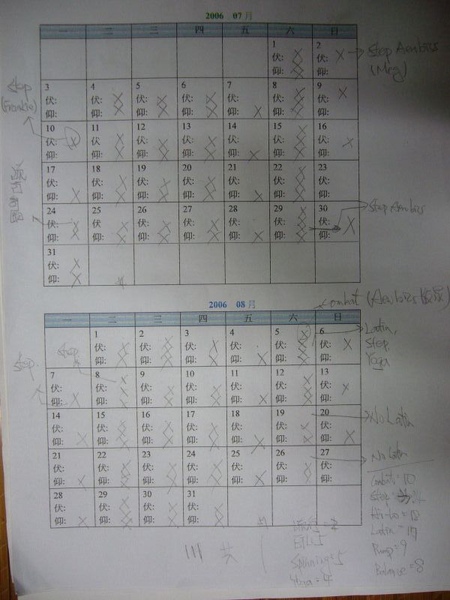 2006 07月
一 二 三 四 五 六 日
1 2
伏:
仰:
Step Aerobics
(May)
3 4 5 6 7 8 9
伏: 伏: 伏: 伏: 伏: 伏: 伏:
仰: 仰: 仰: 仰: 仰: 仰: 仰:
10 11 12 13 14 15 16
伏: 伏: 伏: 伏: 伏: 伏: 伏:
仰: 仰: 仰: 仰: 仰: 仰: 仰:
17 18 19 20 21 22 23
伏: 伏: 伏: 伏: 伏: 伏: 伏:
仰: 仰: 仰: 仰: 仰: 仰: 仰:
24 25 26 27 28 29 30
伏: 伏: 伏: 伏: 伏: 伏: 伏:
仰: 仰: 仰: 仰: 仰: 仰: 仰:
Step Aerobics
31
伏:
仰:
2006 08月
一 二 三 四 五 六 日
1 2 3 4 5 6
伏: 伏: 伏: 伏: 伏: 伏:
仰: 仰: 仰: 仰: 仰: 仰:
Latin
Step
Yoga
Step
7 8 9 10 11 12 13
伏: 伏: 伏: 伏: 伏: 伏: 伏:
仰: 仰: 仰: 仰: 仰: 仰: 仰:
14 15 16 17 18 19 20
伏: 伏: 伏: 伏: 伏: 伏: 伏:
仰: 仰: 仰: 仰: 仰: 仰: 仰:
No Latin
21 22 23 24 25 26 27
伏: 伏: 伏: 伏: 伏: 伏: 伏:
仰: 仰: 仰: 仰: 仰: 仰: 仰:
No Latin
28 29 30 31
伏: 伏: 伏: 伏:
仰: 仰: 仰: 仰:
Combat = 10
Step
Pump = 9
Balance = 8
Spinning = 5
Yoga = 4